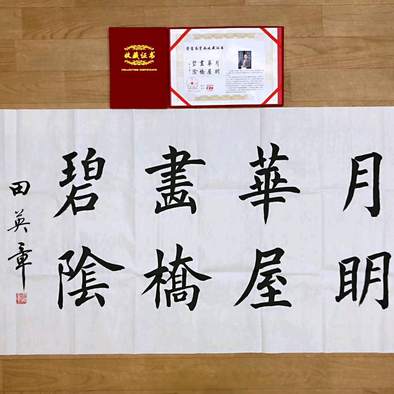 收藏证书
COLLECTION CERTIFICATE
月明
華屋
畫橋
碧陰
月明
華屋
畫橋
碧陰
田英章